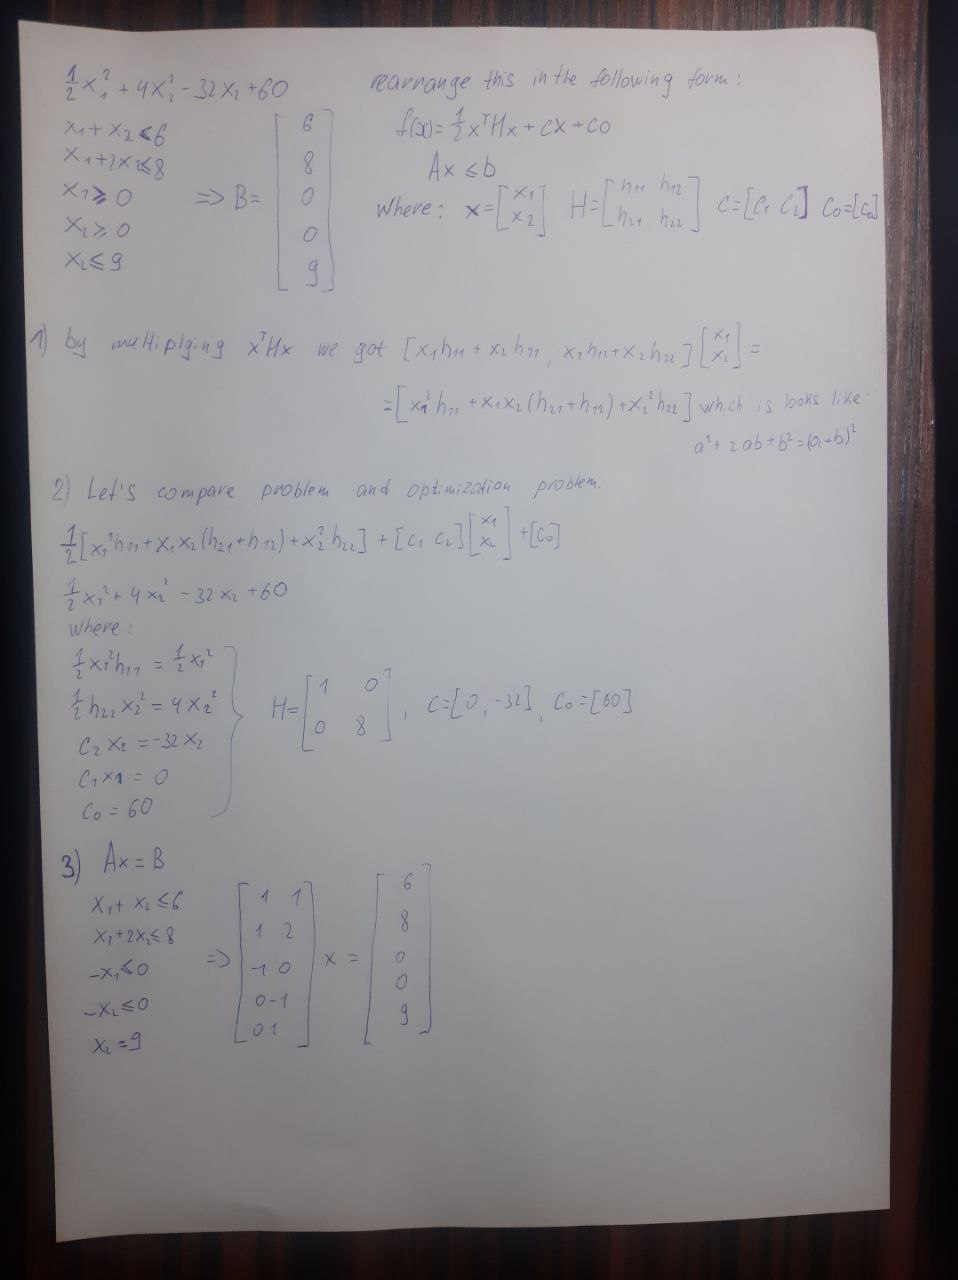 ½x₁² + 4x₂² - 32x₂ + 60
rearrange this in the following form:
x₁ + x₂ ≤ 6
f(x) = ½xᵀHx + cx + c0
x₁ + 2x₂ ≤ 8
Ax ≤ b
x₁ ≥ 0 => B = [6 8 0 0 9]
where: x = [x1 x2] H = [h11 h12 h21 h22] C = [C1 C2] C0 = [C0]
x₂ ≥ 0
x₂ ≤ 9
1) by multiplging xᵀHx we got [x1h11 + x2h21, x1h12 + x2h22] [x1 x2] =
= [x1²h11 + x1x2(h21 + h12) + x2²h22] which is looks like:
a² + 2ab + b² = (a+b)²
2) Let's compare problem and optimization problem.
½[x1²h11 + x1x2(h21 + h12) + x2²h22] + [c1 c2] [x1 x2] + [c0]
½x1² + 4x2² - 32x2 + 60
where:
½x1²h11 = ½x1²
½h22x2² = 4x2²
H = [1 0 0 8], C = [0, -32], C0 = [60]
C2x2 = -32x2
C1x1 = 0
C0 = 60
3) Ax = B
x1 + x2 ≤ 6
x1 + 2x2 ≤ 8
-x1 ≤ 0 => [1 1 1 2 -1 0 0 -1 0 1] x = [6 8 0 0 9]
-x2 ≤ 0
x2 = 9